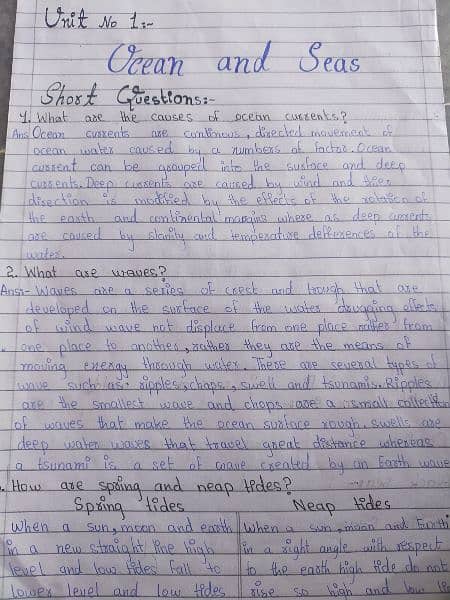 Unit No 1:-
Ocean and Seas
Short Questions:-
1. What are the causes of ocean currents?
Ans Ocean currents are continous, directed movement of
ocean water caused by a numbers of factor. Ocean
current can be grouped into the surface and deep
currents. Deep currents are caused by wind and their
direction is modified by the effects of the rotation of
the earth and continental margins where as deep currents
are caused by slanity and temperature defferences of the
water.
2. What are waves?
Ans:- Waves are a series of crest and trough that are
developed on the surface of the water dragging effects
of wind wave not displace from one place rather from
one place to another, rather they are the means of
moving energy through water. There are several types of
wave such as: ripples, chops, swell and tsunamis. Ripples
are the smallest wave and chops are a small collection
of waves that make the ocean surface rough. swells are
deep water waves that travel great distance whereas
a tsunami is a set of wave created by an Earth wave
How are spring and neap tides?
Spring tides Neap tides
When a sun, moon and earth When a sun, moon and Earth
in a new straight line high in a right angle with respect
level and low tides fall to to the earth high tide do not
lower level and low tides rise so high and low